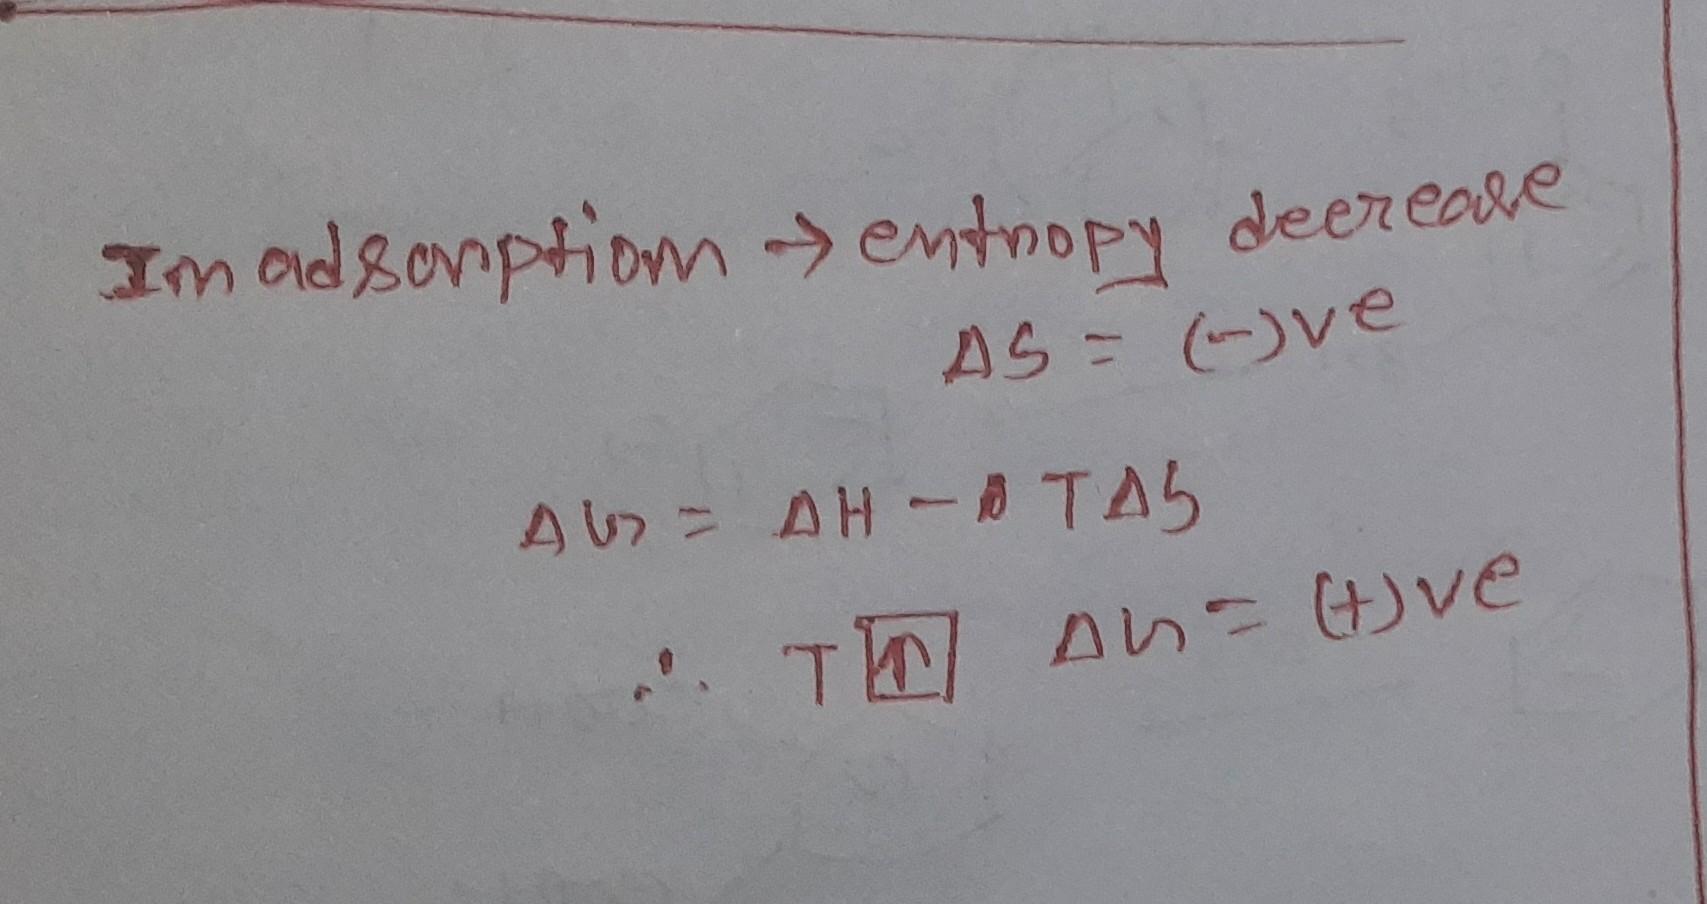 In adsorption → entropy decrease
ΔS = (-)ve
ΔG = ΔH - TΔS
∴ T ↑ ΔG = (+)ve